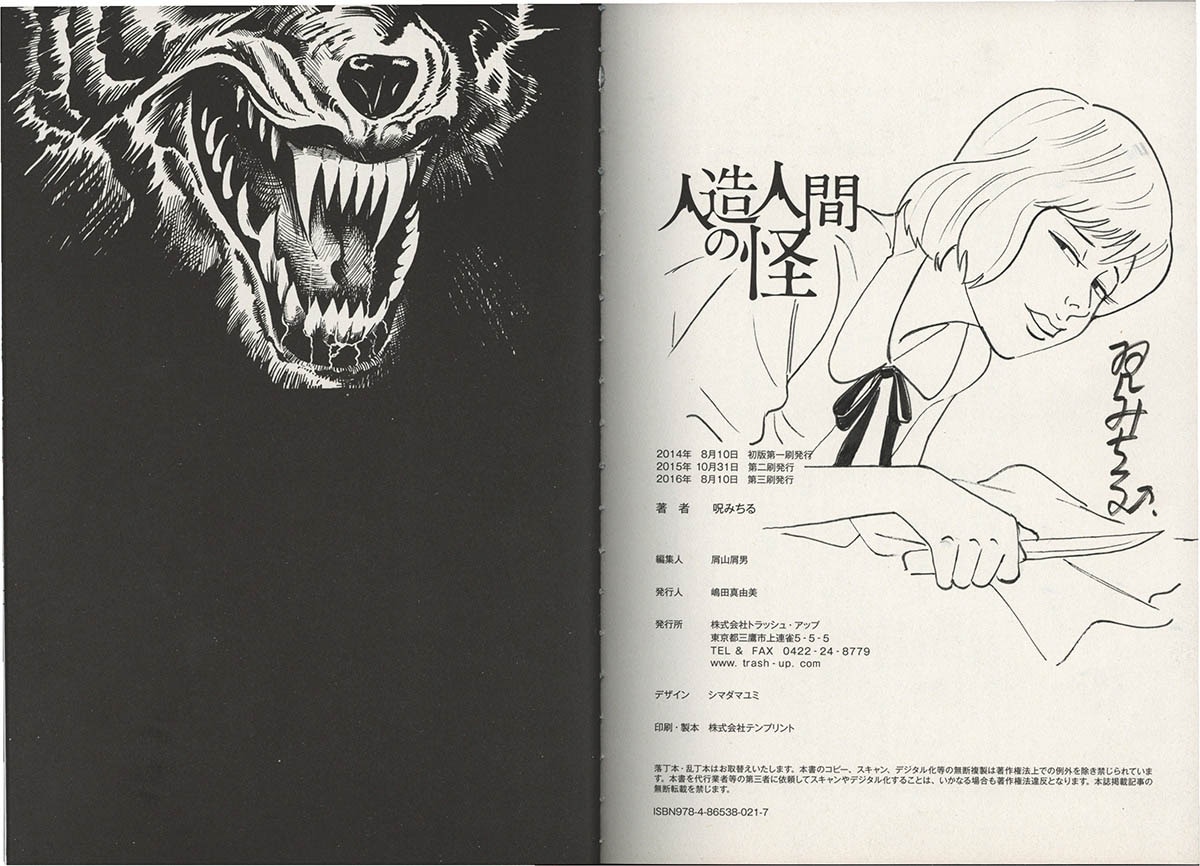 人造人間
の怪
呪みちる
2014年 8月10日 初版第一刷発行
2015年 10月31日 第二刷発行
2016年 8月10日 第三刷発行
著 者 呪みちる
編集人 屑山屑男
発行人 嶋田真由美
発行所 株式会社トラッシュ・アップ
東京都三鷹市上連雀5-5-5
TEL & FAX 0422-24-8779
www. trash-up. com
デザイン シマダマユミ
印刷・製本 株式会社テンプリント
落丁本・乱丁本はお取替えいたします。本書のコピー、スキャン、デジタル化等の無断複製は著作権法上での例外を除き禁じられていま
す。本書を代行業者等の第三者に依頼してスキャンやデジタル化することは、いかなる場合も著作権法違反となります。本誌掲載記事の
無断転載を禁じます。
ISBN978-4-86538-021-7